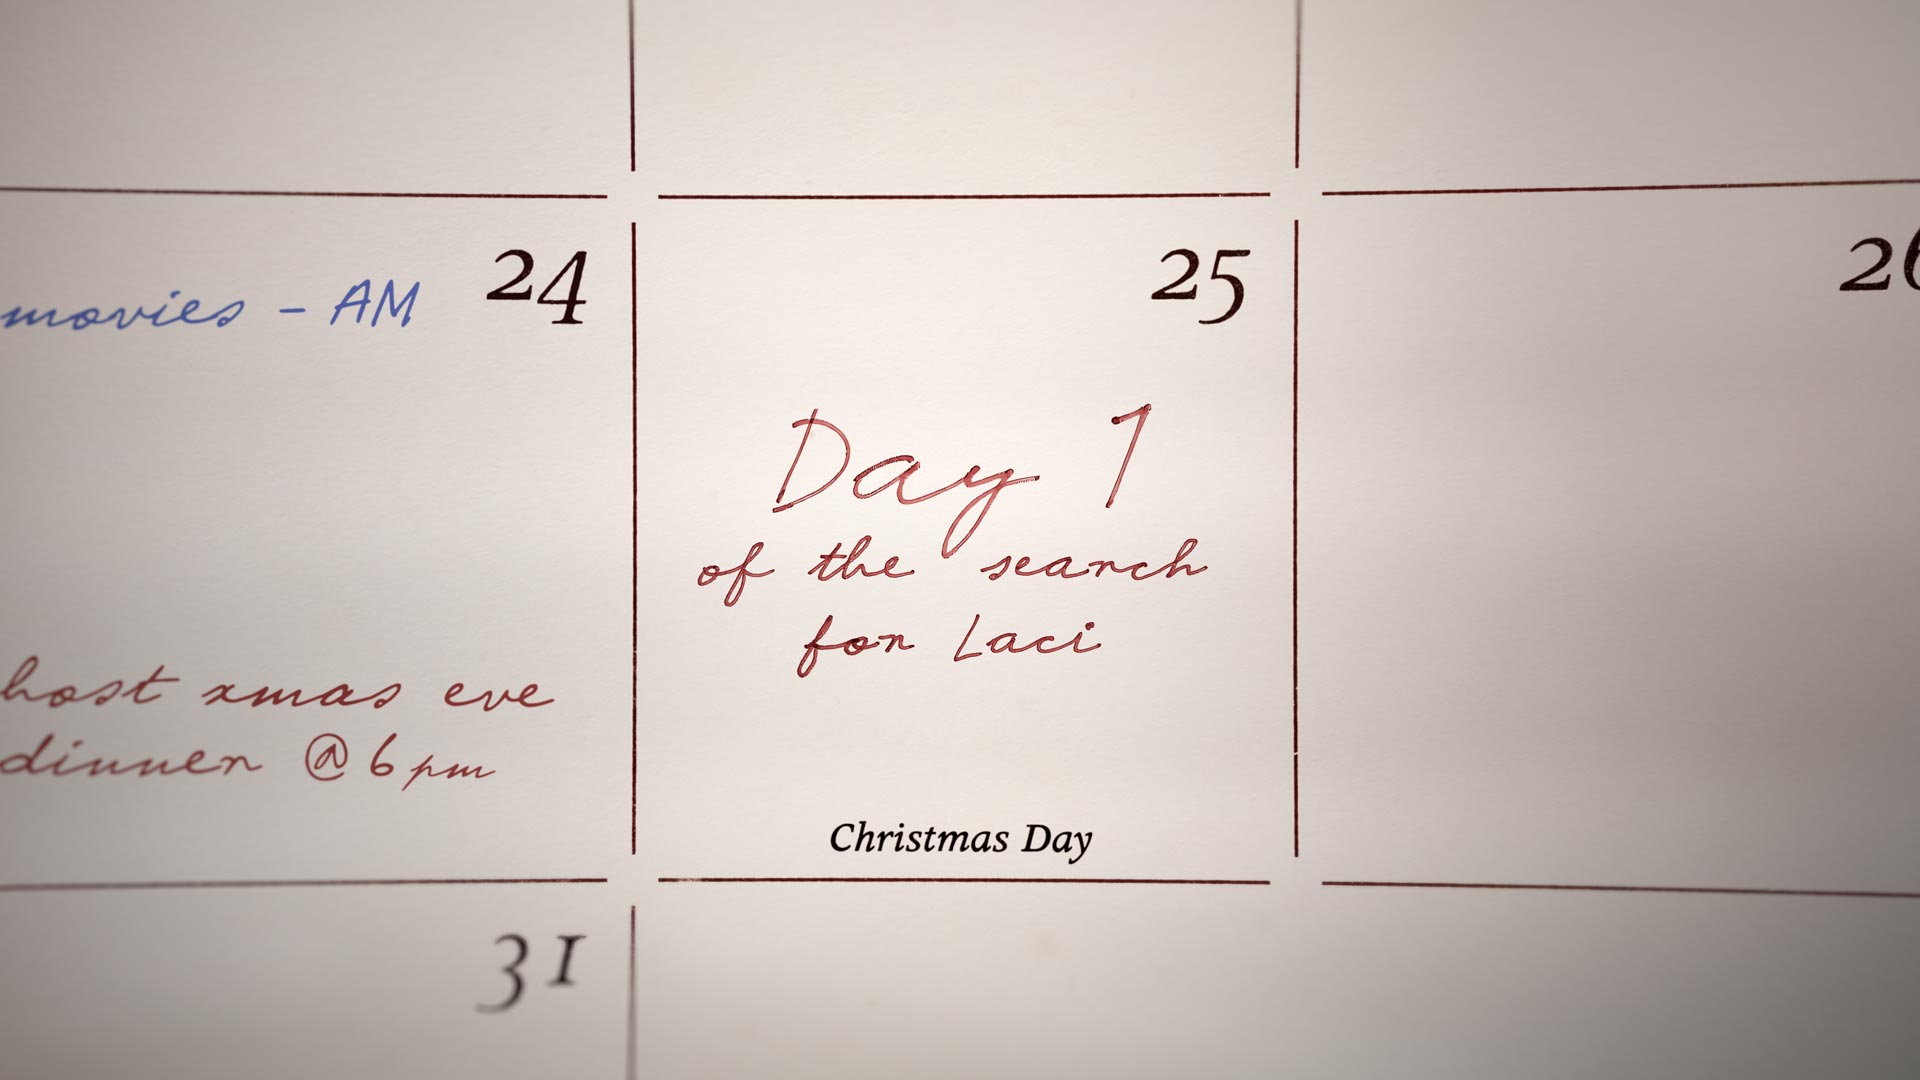 24
movies - AM
host xmas eve
dinner @ 6pm
25
Day 1
of the search
for Laci
Christmas Day
26
31